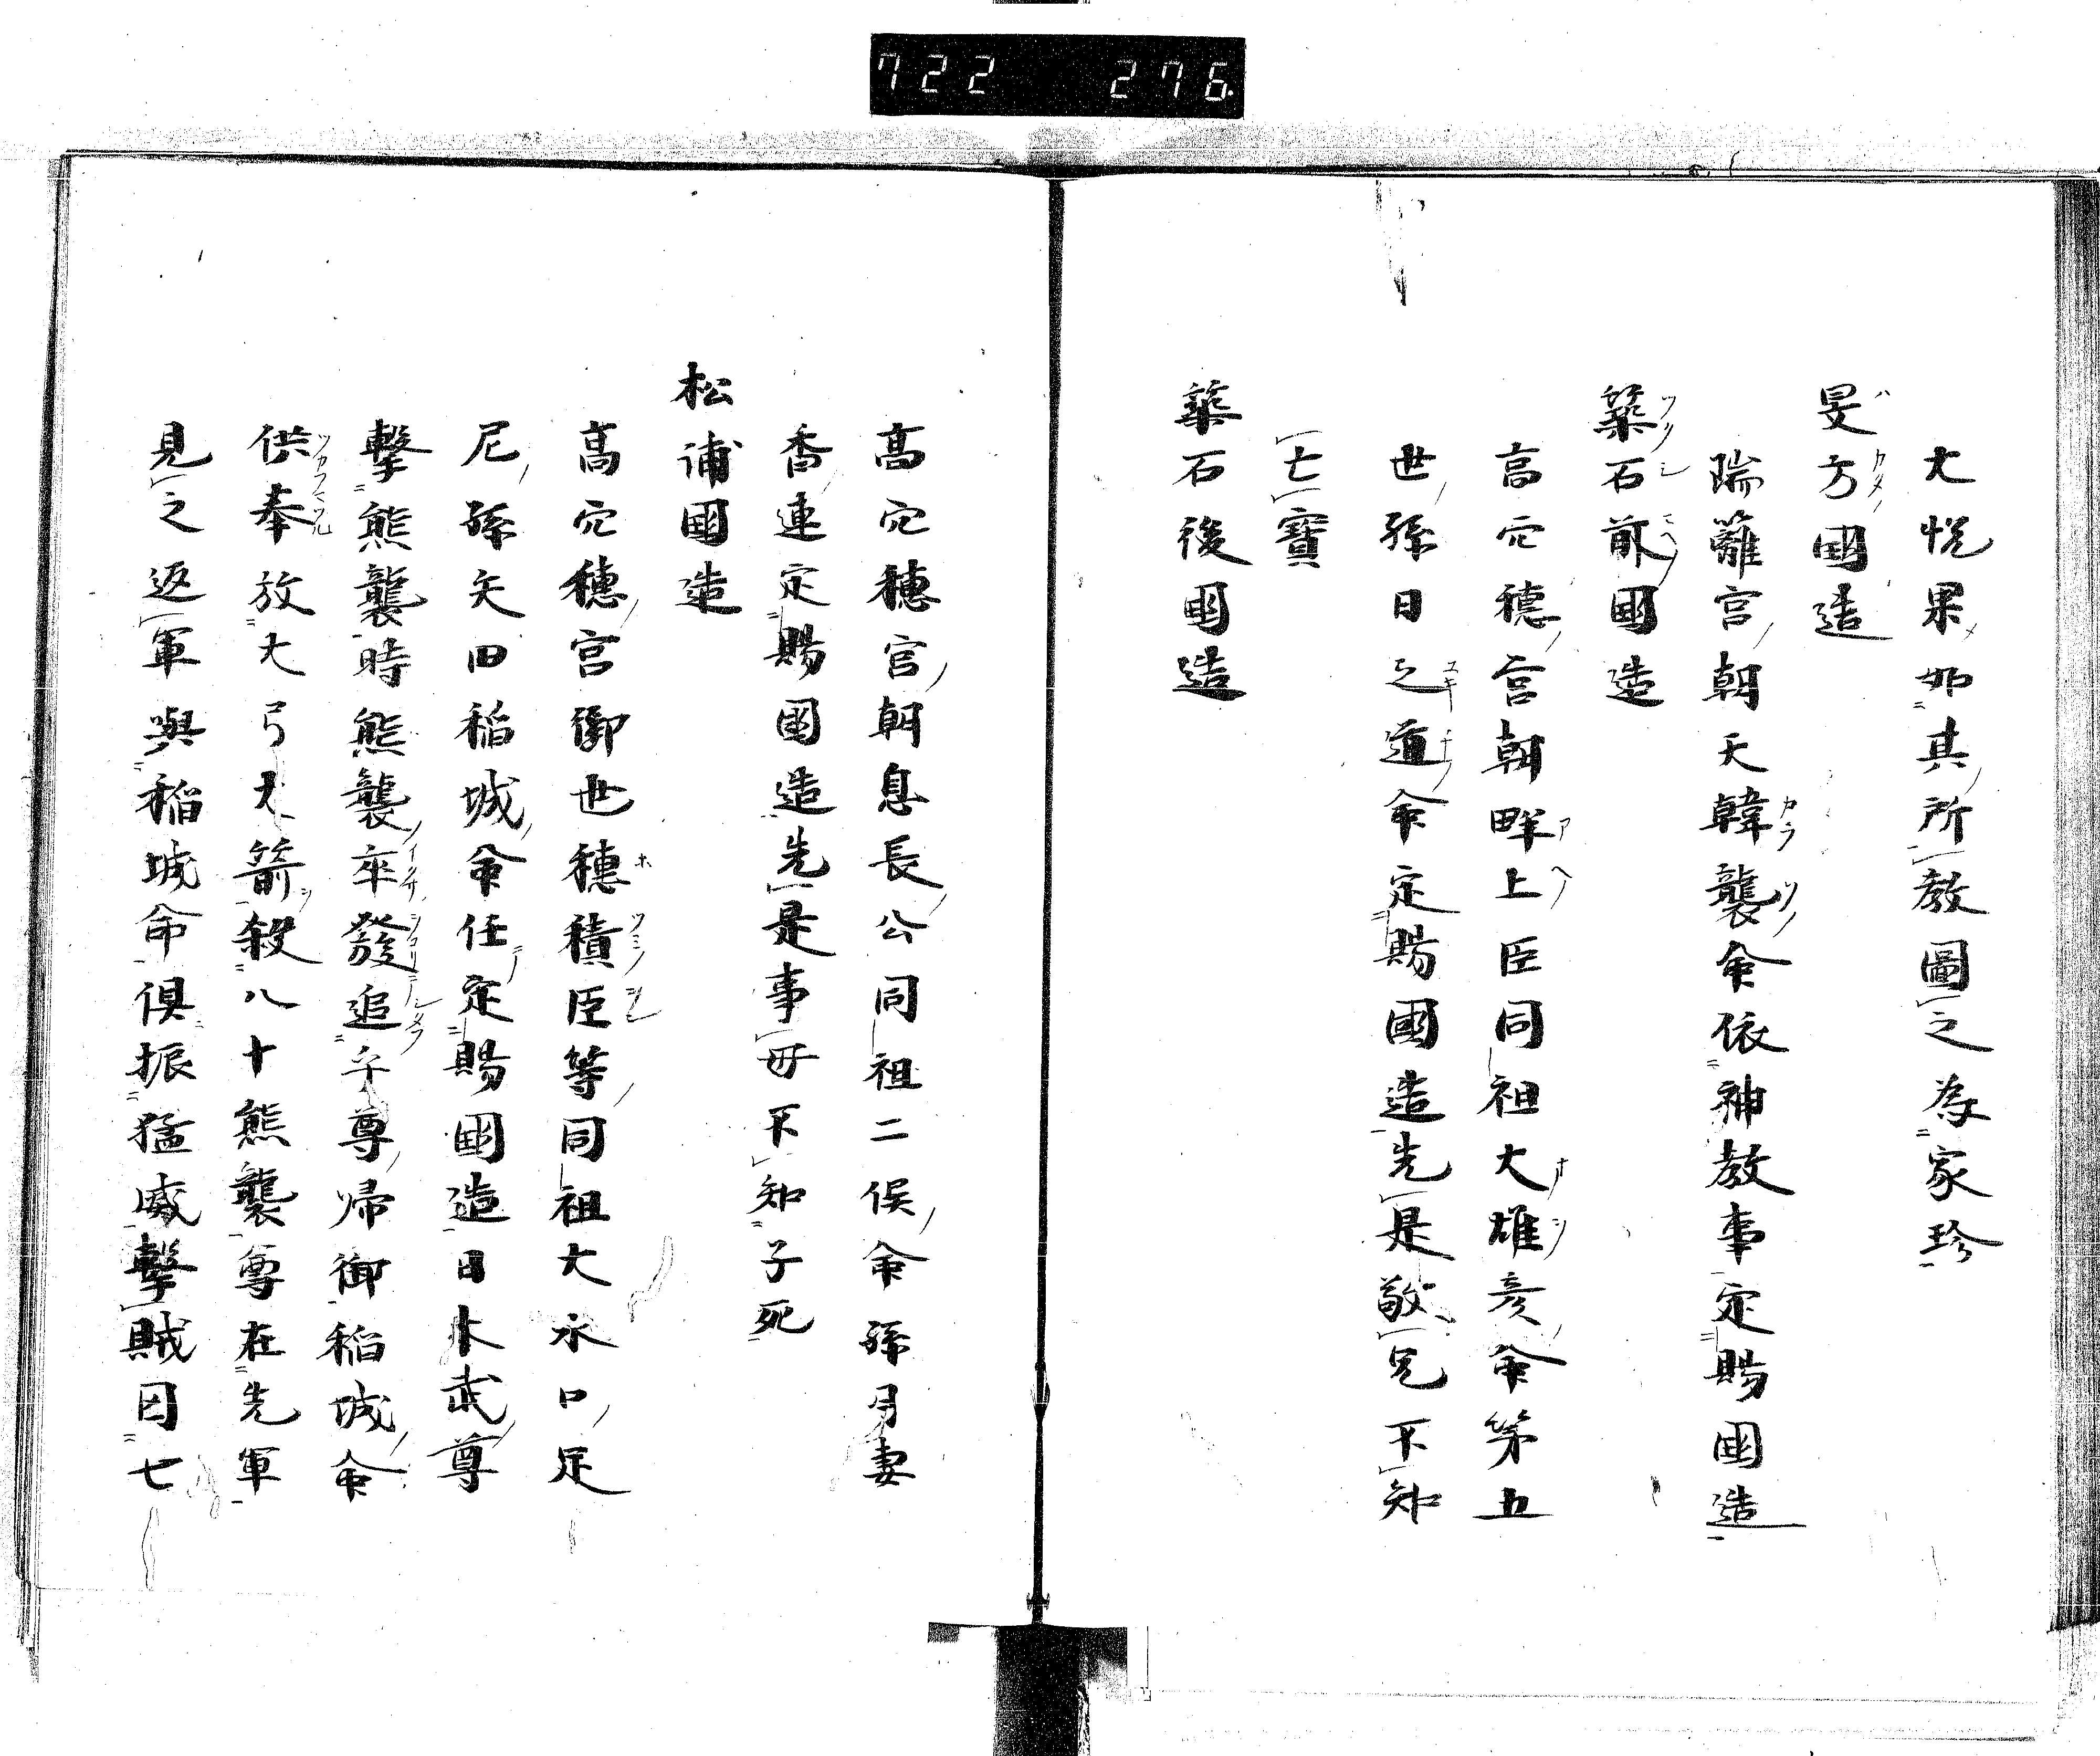 722 276
大悦果如其所教圖之為家珍
旻方國造
瑞籬宮朝天韓襲命依神教事定賜國造
築石前國造
高穴穗宮朝畔上臣同祖大雄彦命第五
世孫日之道命定賜國造先是敬兄不知
亡寶
築石後國造
高穴穗宮朝息長公同祖二俣命孫月妻
香連定賜國造先是事毋不知子死
松浦國造
高穴穗宮御世穗積臣等同祖大水口足
尼孫矢田稲城命任定賜國造日本武尊
撃熊襲時熊襲卒發追于尊帰御稲城命
供奉放大弓大箭殺八十熊襲尊在先軍
見之返軍與稲城命俱振猛威撃賊因七